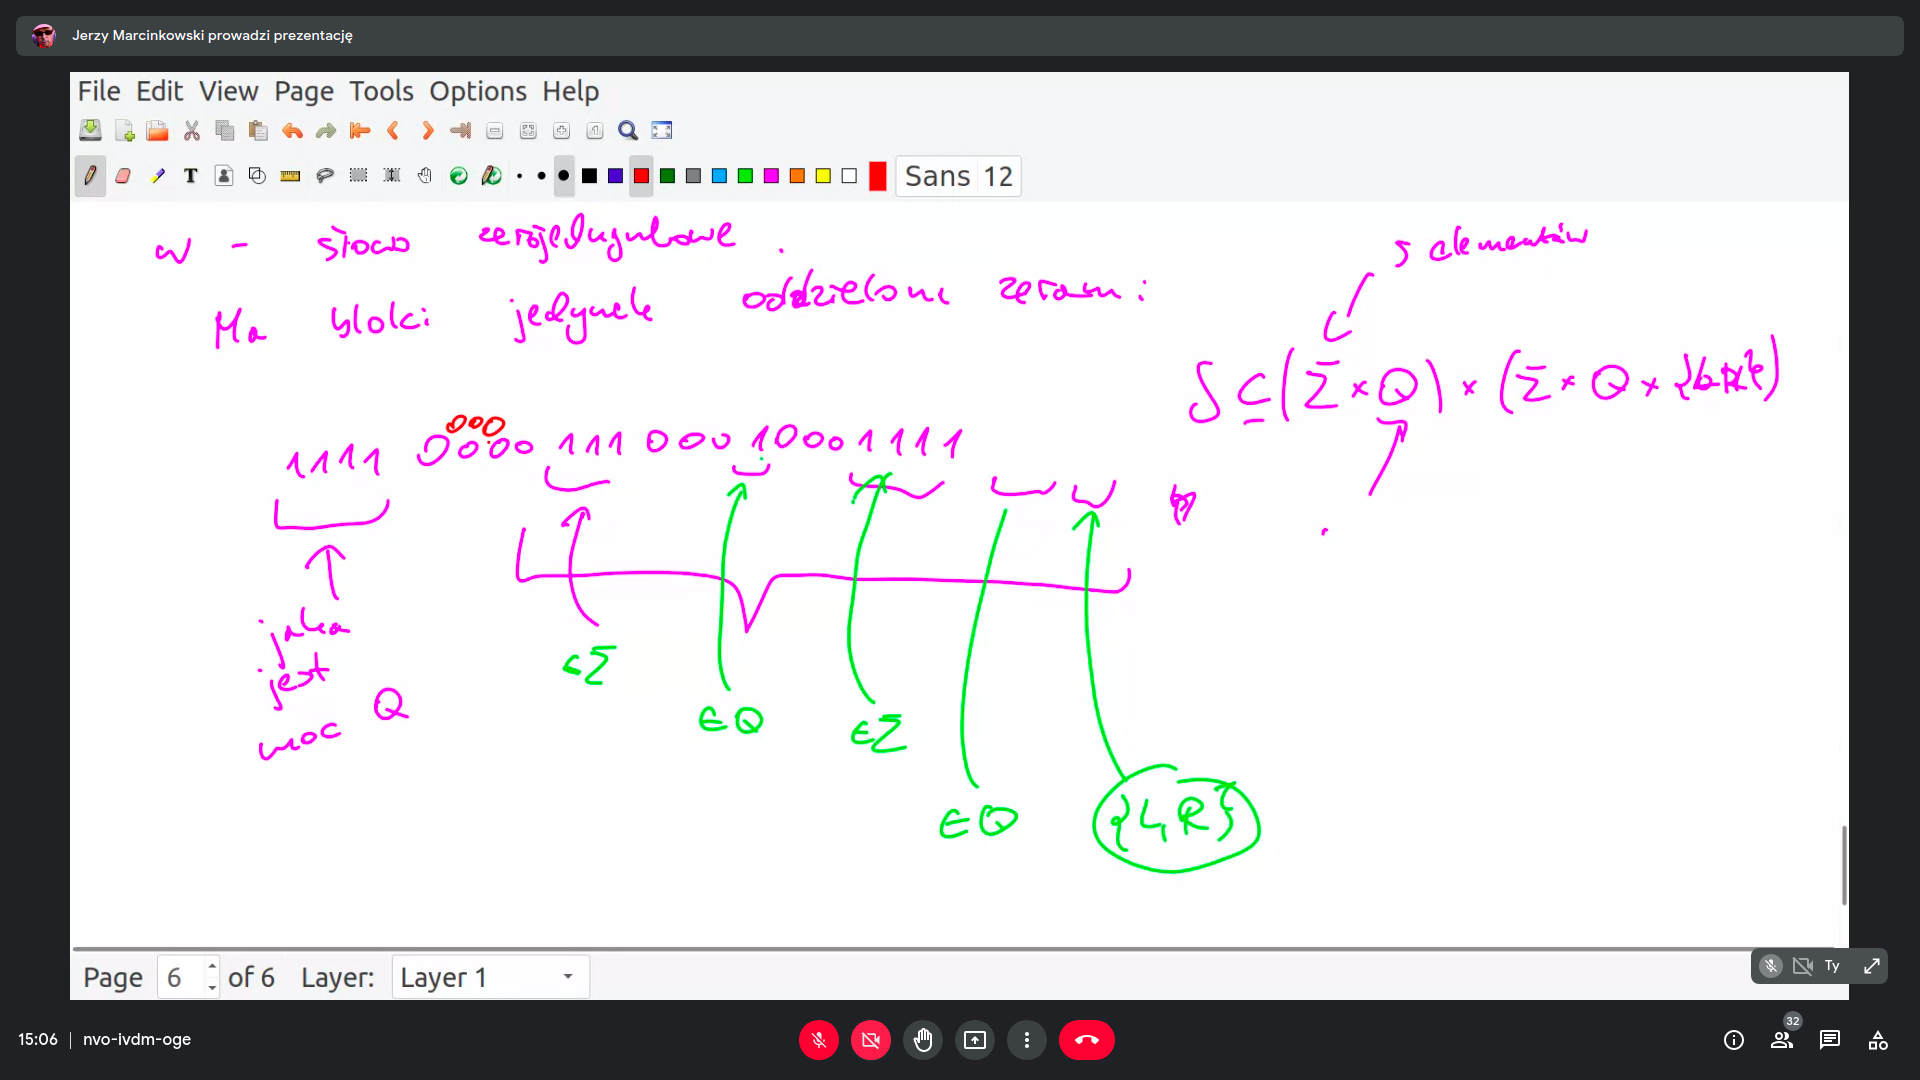 Jerzy Marcinkowski prowadzi prezentację
File Edit View Page Tools Options Help
T
Sans 12
w - słowo zerojedynkowe.
5 elementów
Ma bloki jedynek oddzielone zerami:
δ ⊆ (Σ × Q) × (Σ × Q × {L,R})
000
1111 0000 111 000 1000 1111
jaka
jest
moc Q
∈Σ
∈Q
∈Σ
∈Q
{L,R}
Page 6 of 6 Layer: Layer 1
Ty
15:06 | nvo-ivdm-oge
32